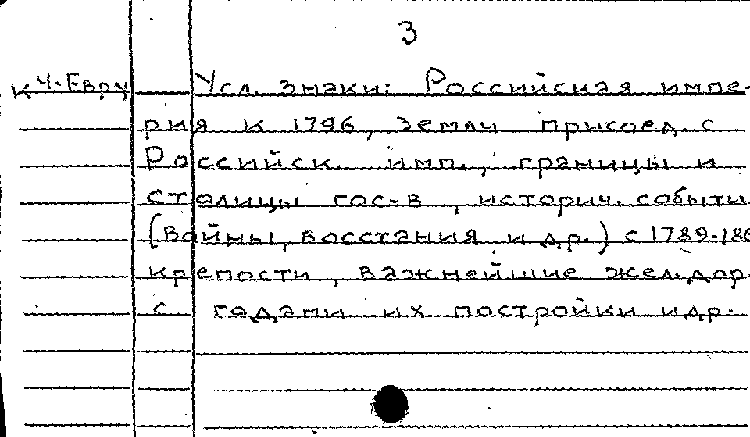 3
К Ч-Евру Усл. знаки: Российская импе-
рия к 1796, земли присоед. с
Российск. имп., границы и
столицы гос-в, историч. событи
(войны, восстания и др.) с 1789-186
крепости, важнейшие жел.дор.
с годами их постройки и др.